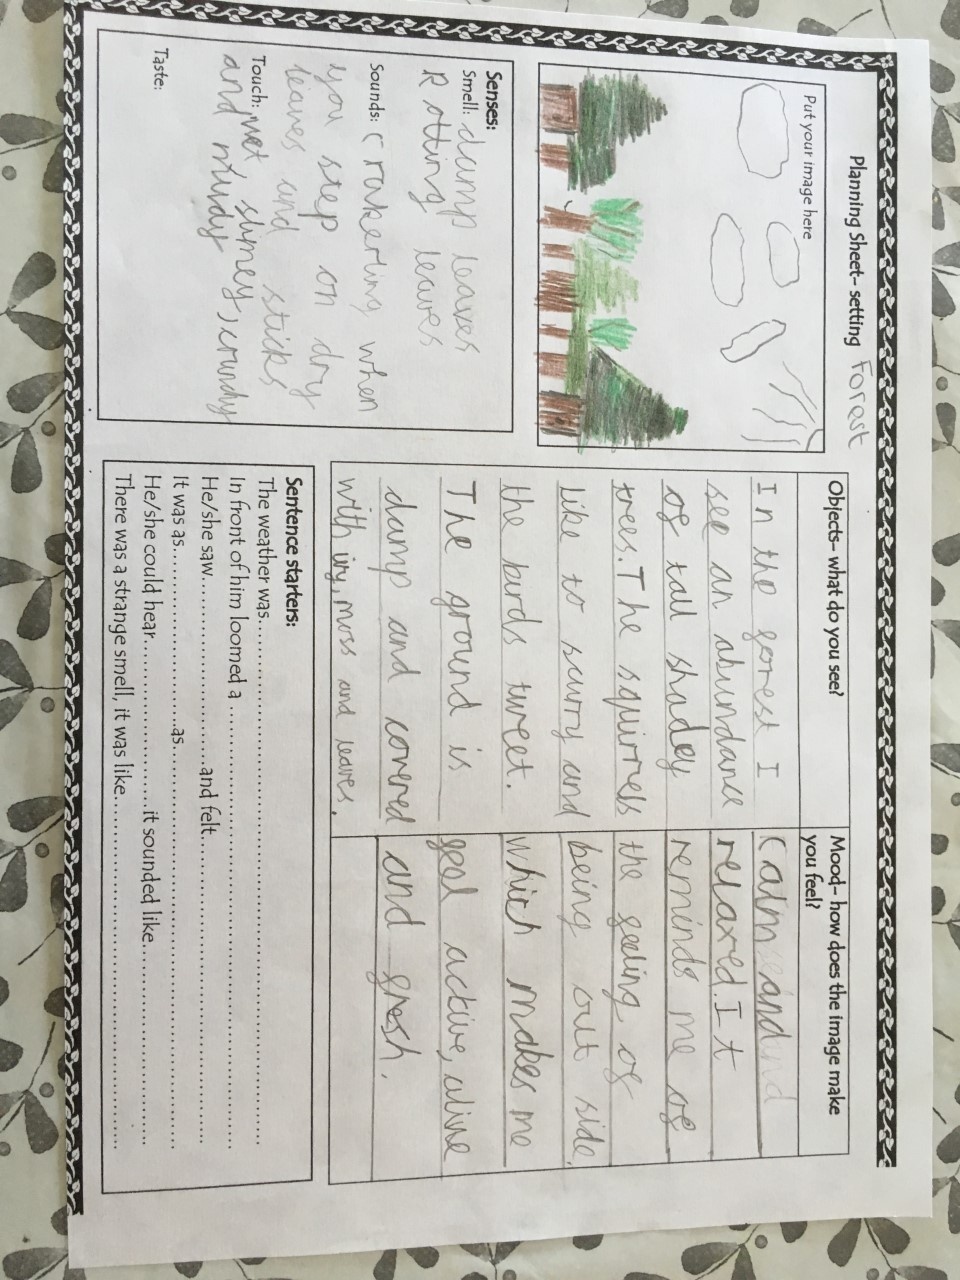 Planning Sheet- setting Forest
Put your image here
Senses:
Smell: damp leaves
Rotting leaves
Sounds: Crakerling when
you step on dry
leaves and sticks
Touch: wet slimey, crunchy
and mudy
Taste:
Objects- what do you see?
In the forest I
see an abundance
of tall shadey
trees. The squirrels
like to scurry and
the birds tweet.
The ground is
damp and covered
with ivy, moss and leaves.
Mood- how does the image make
you feel?
Calm and
relaxed. It
reminds me of
the feeling of
being out side,
which makes me
feel active, alive
and fresh.
Sentence starters:
The weather was..........................................................
In front of him loomed a ..........................................................
He/she saw..............................and felt..............................................
It was as..............................as..........................................................
He/she could hear..............................it sounded like..............................
There was a strange smell, it was like..........................................................